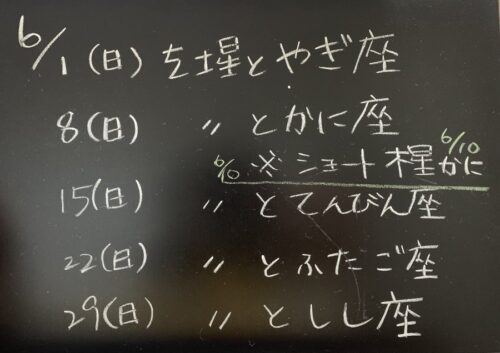 6/1(日) 土星とやぎ座
8(日) 〃 とかに座
6/10 ※ショート 木星かに 6/10
15(日) 〃 とてんびん座
22(日) 〃 とふたご座
29(日) 〃 としし座